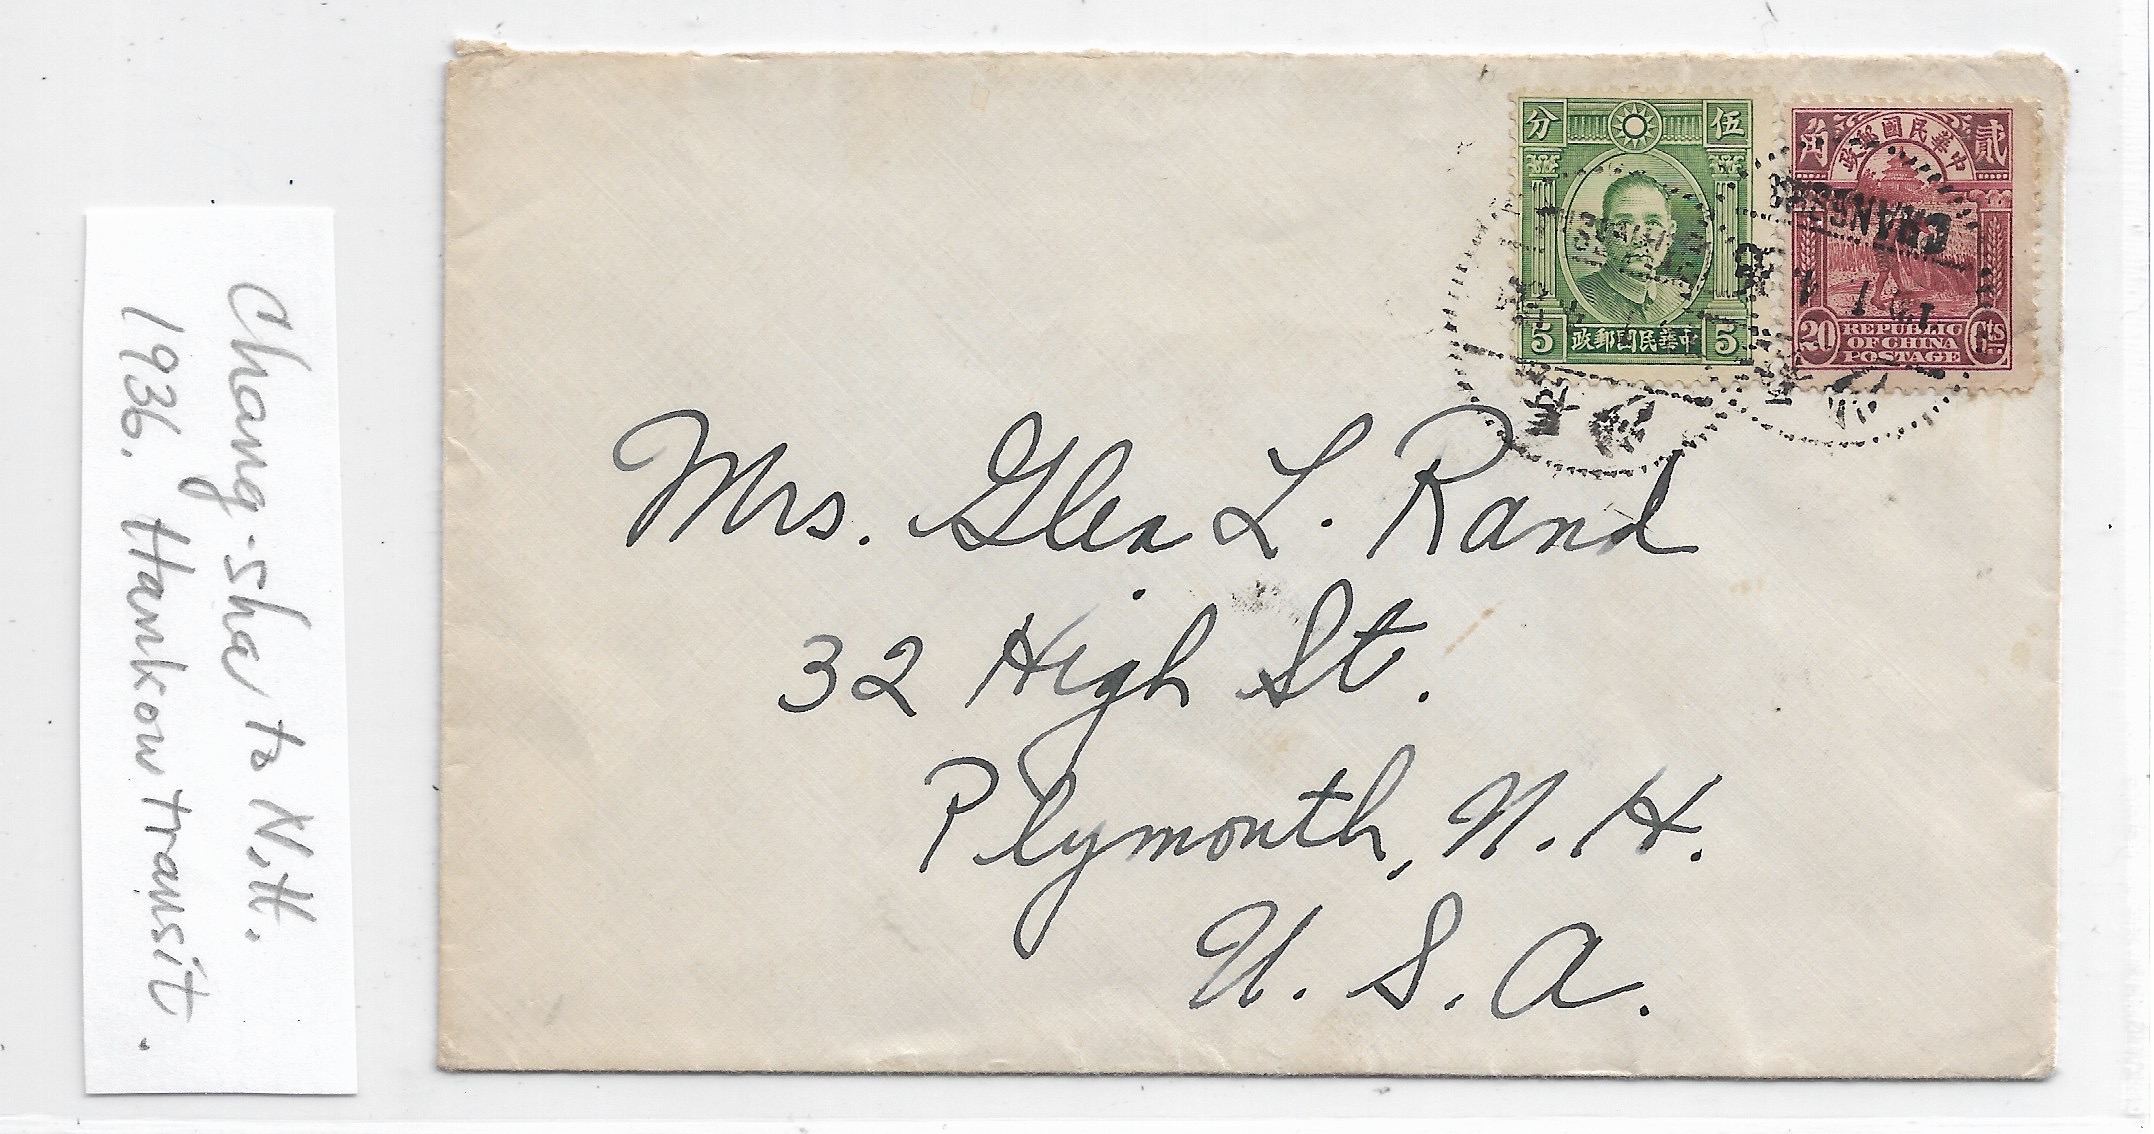 Chang-sha to N.H.
1936. Hankow transit.
分 伍
5 政郵国民華中 5
角 貳
政郵國民華中
20 REPUBLIC Cts
OF CHINA
POSTAGE
Mrs. Glen L. Rand
32 High St.
Plymouth, N. H.
U. S. A.